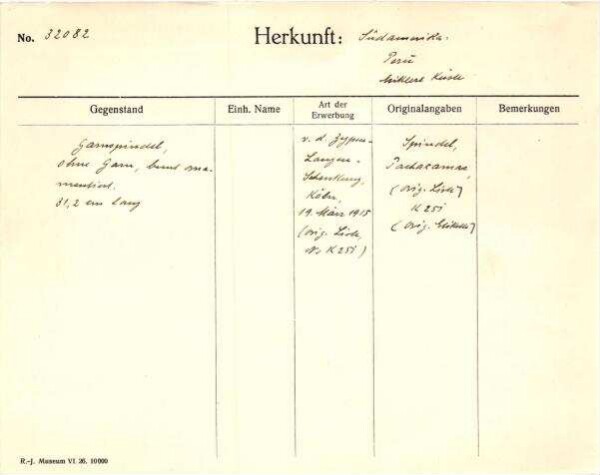 No. 32082
Herkunft: Südamerika.
Peru
Mittlere Küste
Gegenstand
Einh. Name
Art der Erwerbung
Originalangaben
Bemerkungen
Garnspindel,
ohne Garn, bunt orna-
mentiert.
31,2 cm lang
v. d. Zypen-
Langen-
Schenkung,
Köln,
19. März 1915
(orig. Liste,
No K 251)
Spindel,
Pachacamac,
(orig. Liste)
K 251
(orig. Etikette)
R.-J. Museum VI. 26. 10000